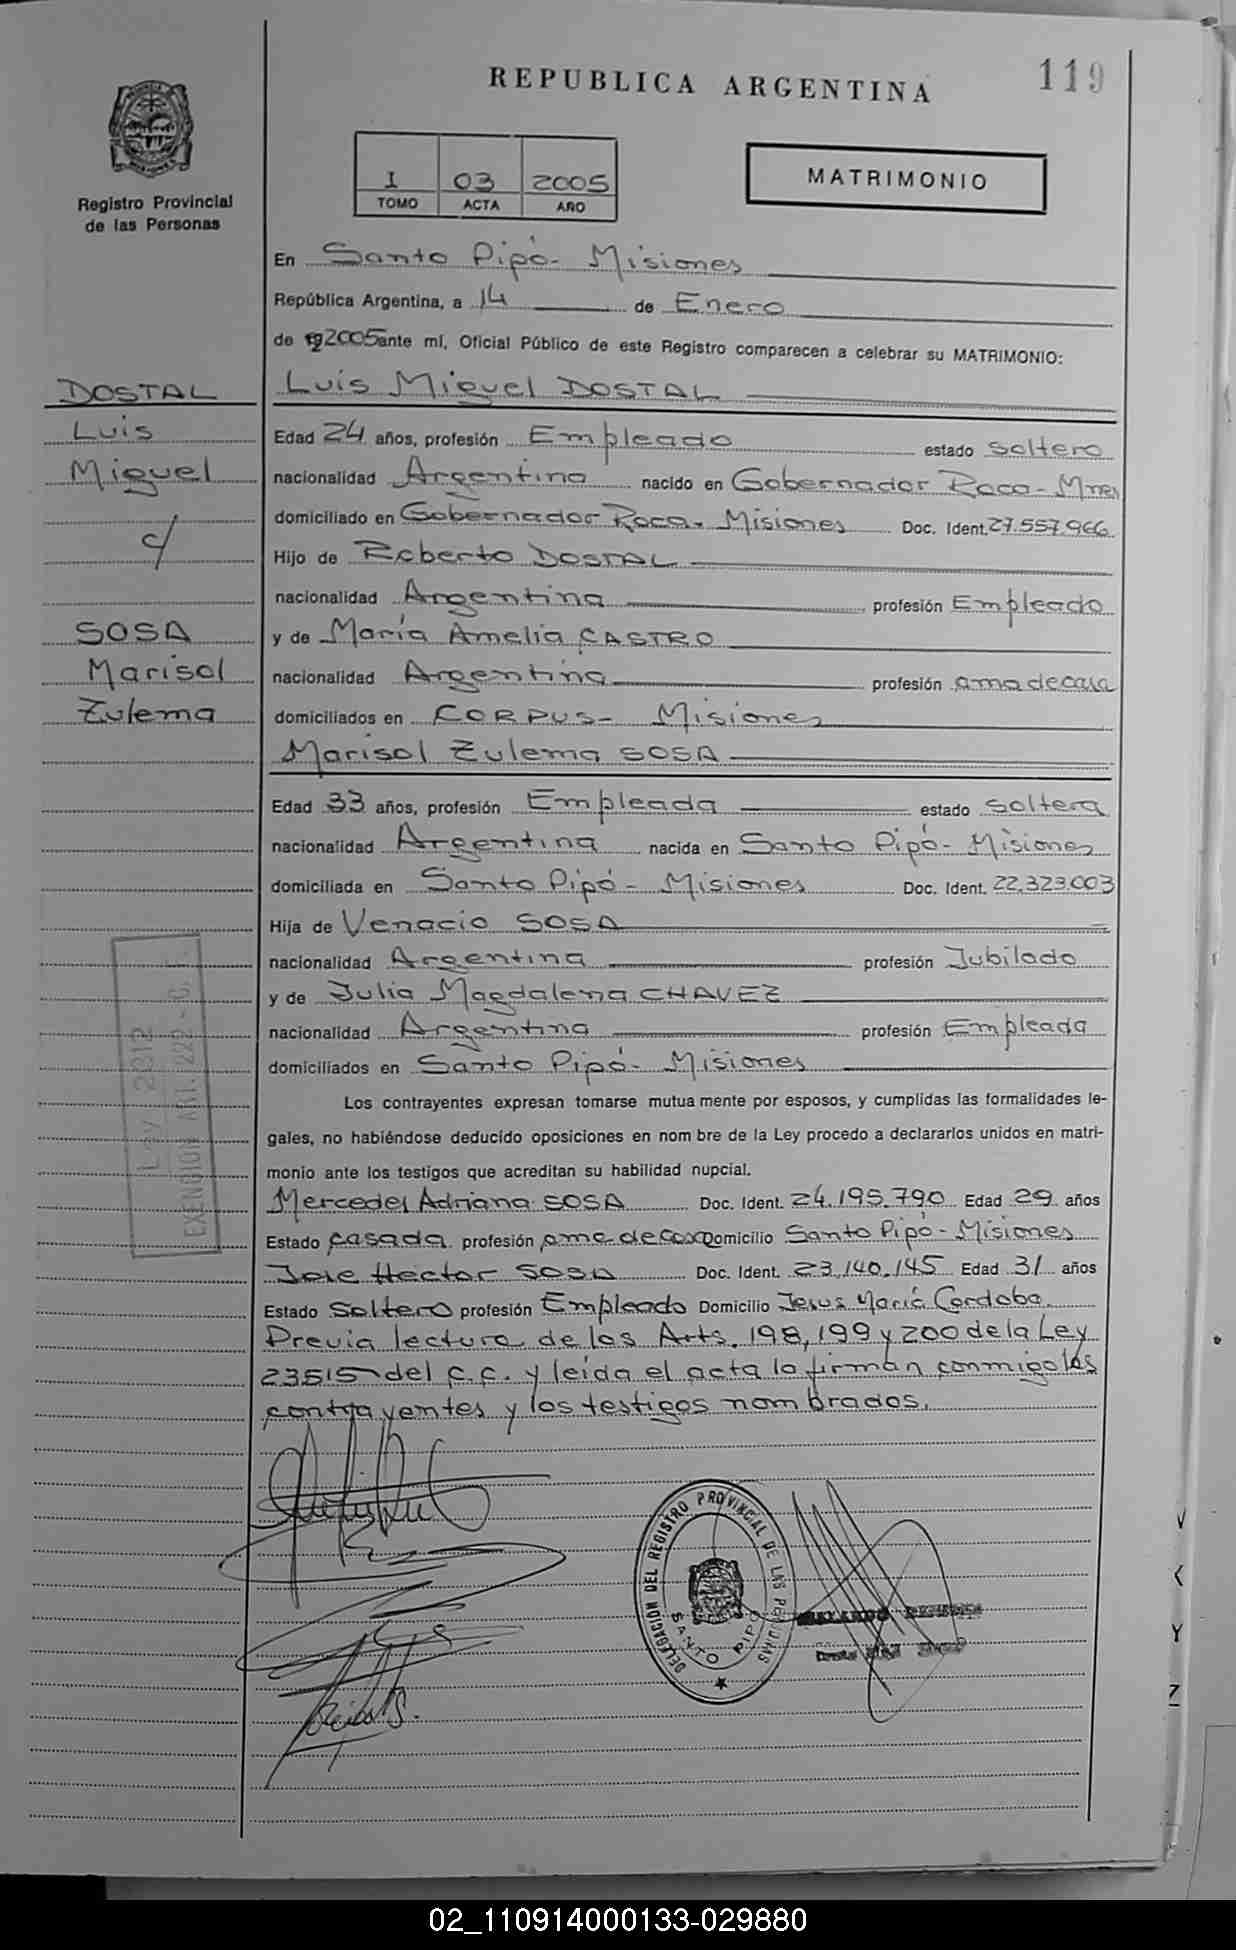 119
REPUBLICA ARGENTINA
Registro Provincial
de las Personas
I 03 2005
TOMO ACTA AÑO
MATRIMONIO
En Santo Pipó - Misiones
República Argentina, a 14 de Enero
de 192005 ante mí, Oficial Público de este Registro comparecen a celebrar su MATRIMONIO:
DOSTAL
Luis
Miguel
c/
SOSA
Marisol
Zulema
Luis Miguel DOSTAL
Edad 24 años, profesión Empleado estado soltero
nacionalidad Argentina nacido en Gobernador Roca - Mnes
domiciliado en Gobernador Roca - Misiones Doc. Ident. 27.557.966
Hijo de Roberto DOSTAL
nacionalidad Argentina profesión Empleado
y de María Amelia CASTRO
nacionalidad Argentina profesión ama de casa
domiciliados en CORPUS - Misiones
Marisol Zulema SOSA
Edad 33 años, profesión Empleada estado soltera
nacionalidad Argentina nacida en Santo Pipó - Misiones
domiciliada en Santo Pipó - Misiones Doc. Ident. 22.323.003
Hija de Venacio SOSA
nacionalidad Argentina profesión Jubilado
y de Julia Magdalena CHAVEZ
nacionalidad Argentina profesión Empleada
domiciliados en Santo Pipó - Misiones
Los contrayentes expresan tomarse mutua mente por esposos, y cumplidas las formalidades le-
gales, no habiéndose deducido oposiciones en nom bre de la Ley procedo a declararlos unidos en matri-
monio ante los testigos que acreditan su habilidad nupcial.
Mercedes Adriana SOSA Doc. Ident. 24.195.790 Edad 29 años
Estado casada profesión ama de casa Domicilio Santo Pipó - Misiones
Jose Hector SOSA Doc. Ident. 23.140.145 Edad 31 años
Estado Soltero profesión Empleado Domicilio Jesus María Cordoba.
Previa lectura de los Arts. 198, 199 y 200 de la Ley
23515 del C.C. y leída el acta la firman conmigo los
contrayentes y los testigos nombrados.
LEY 2312
EXENCION ART. 222 - C. F.
DELEGACION DEL REGISTRO PROVINCIAL DE LAS PERSONAS
SANTO PIPO
02_110914000133-029880